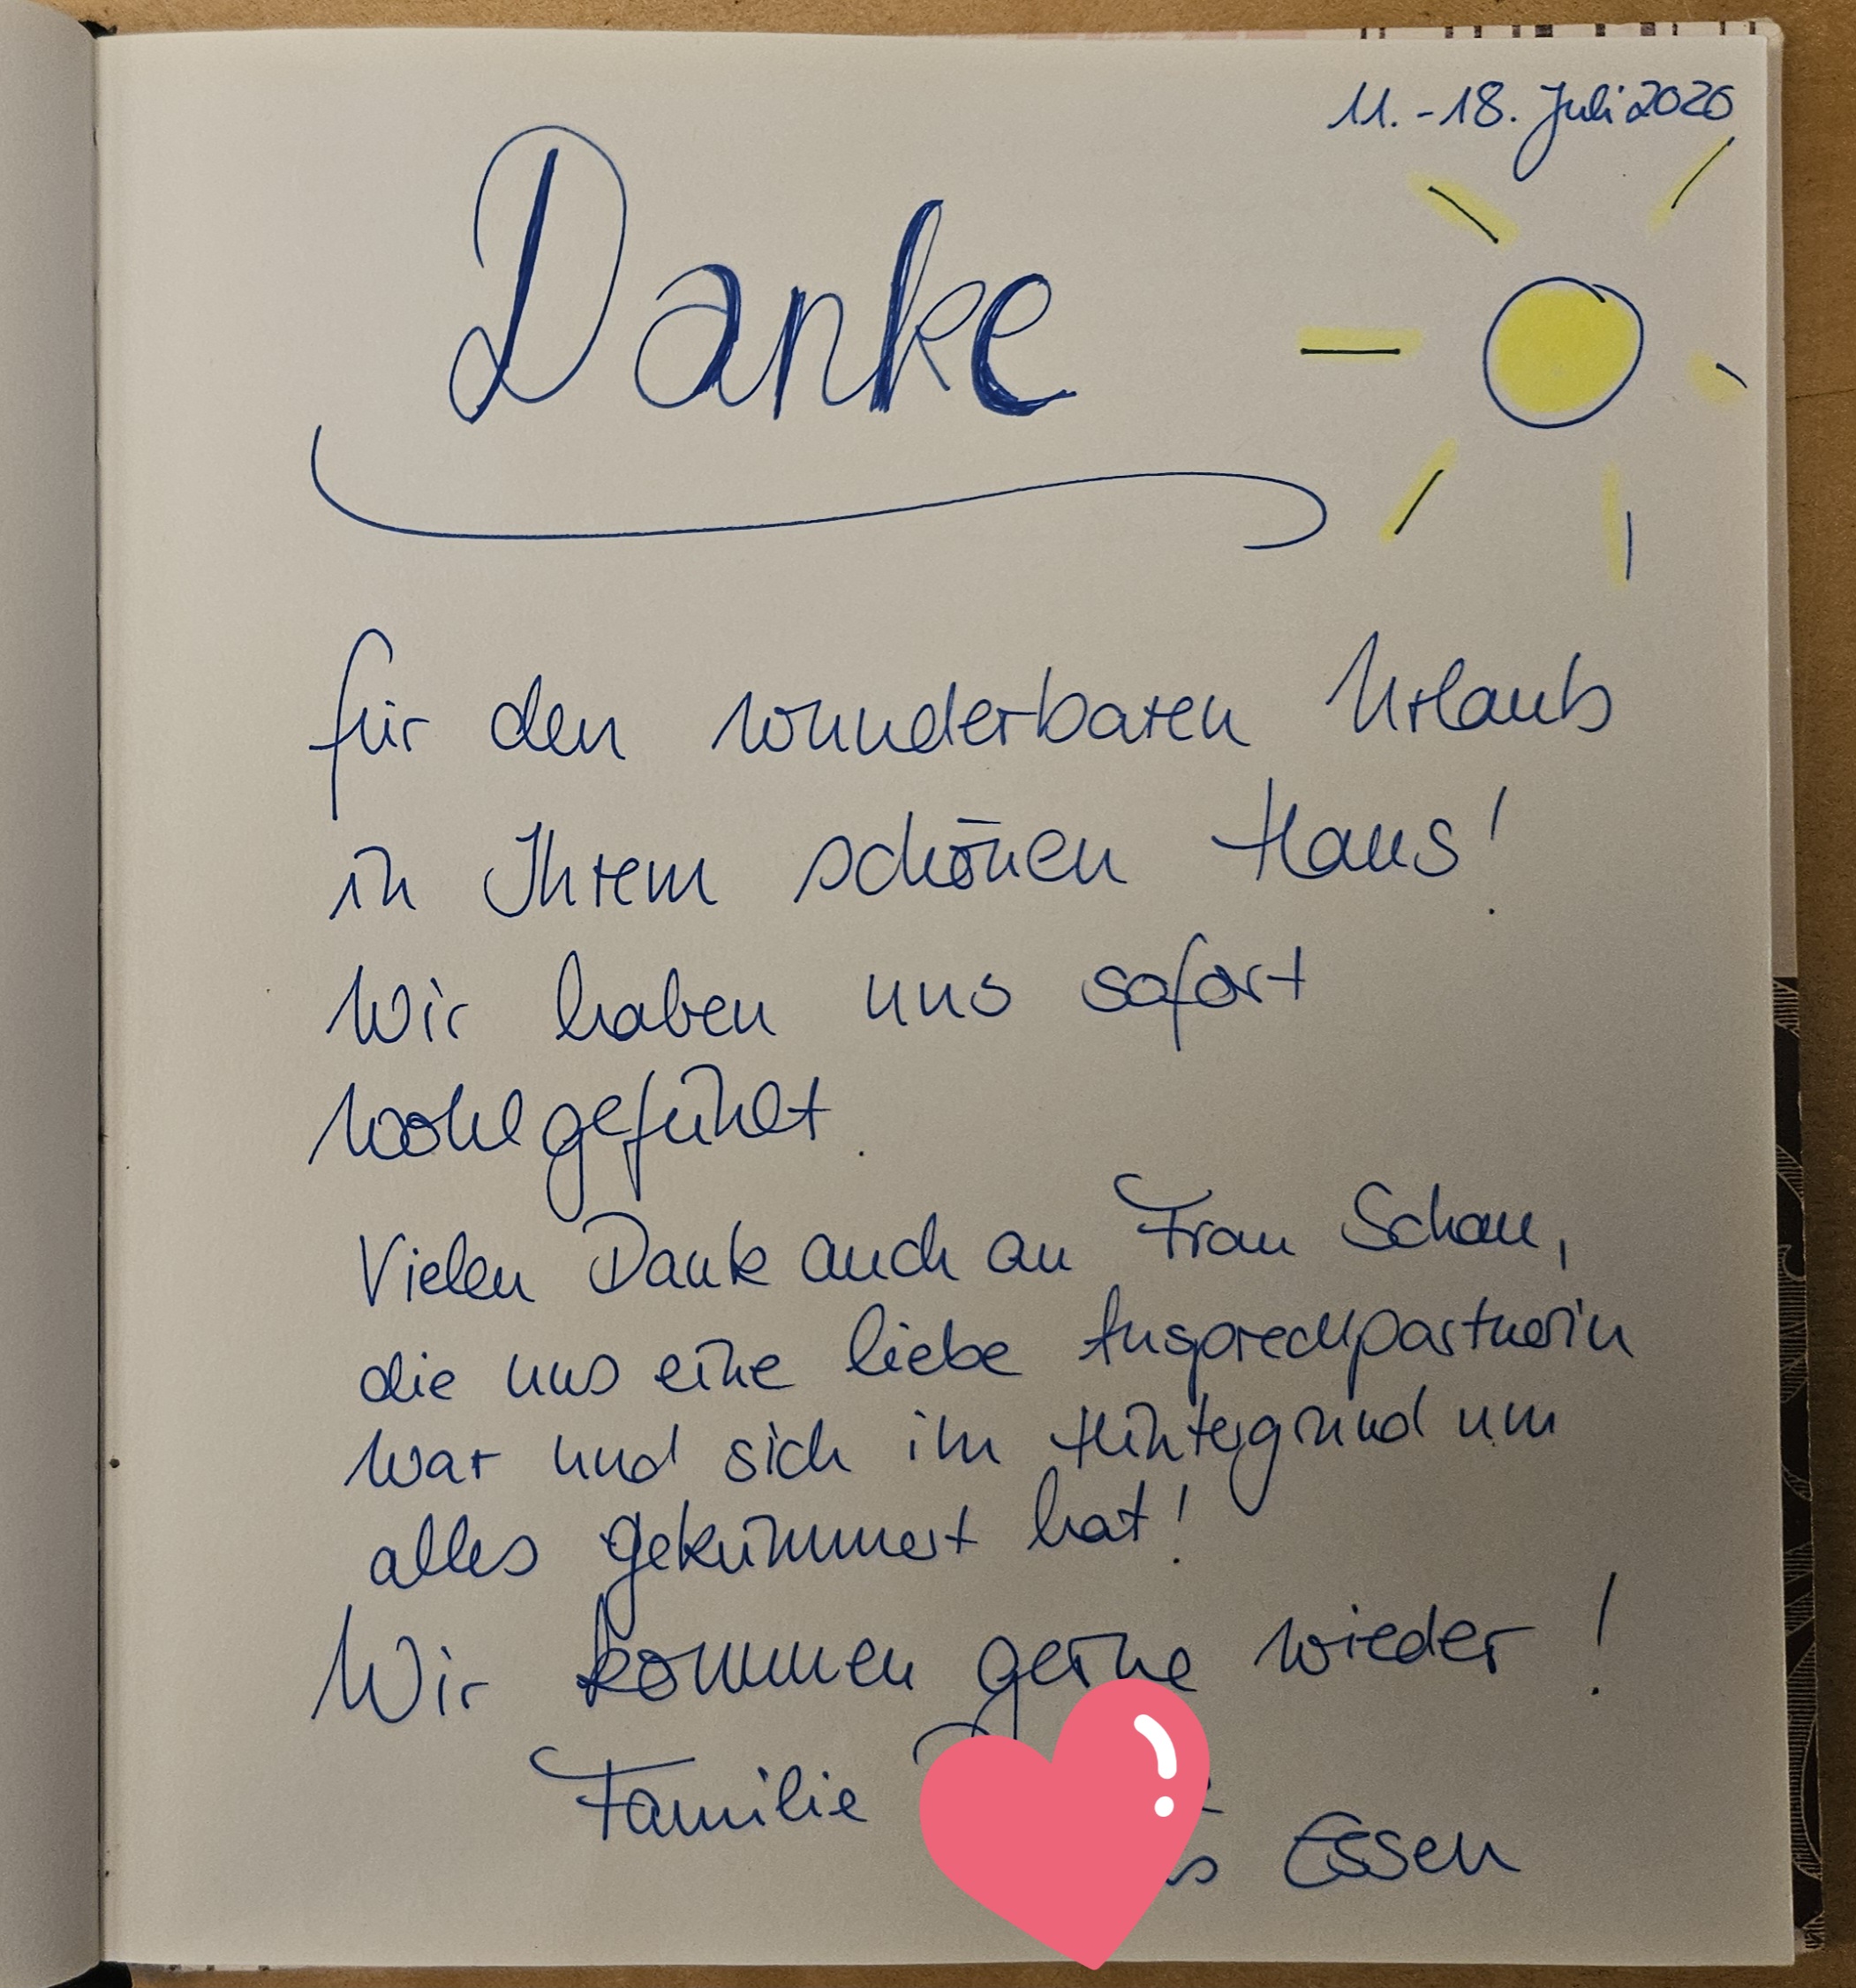 11. - 18. Juli 2026
Danke
für den wunderbaren Urlaub
in Ihrem schönen Haus!
Wir haben uns sofort
wohlgefühlt.
Vielen Dank auch an Frau Schau,
die uns eine liebe Ansprechpartnerin
war und sich im Hintergrund um
alles gekümmert hat!
Wir kommen gerne wieder!
Familie
Essen